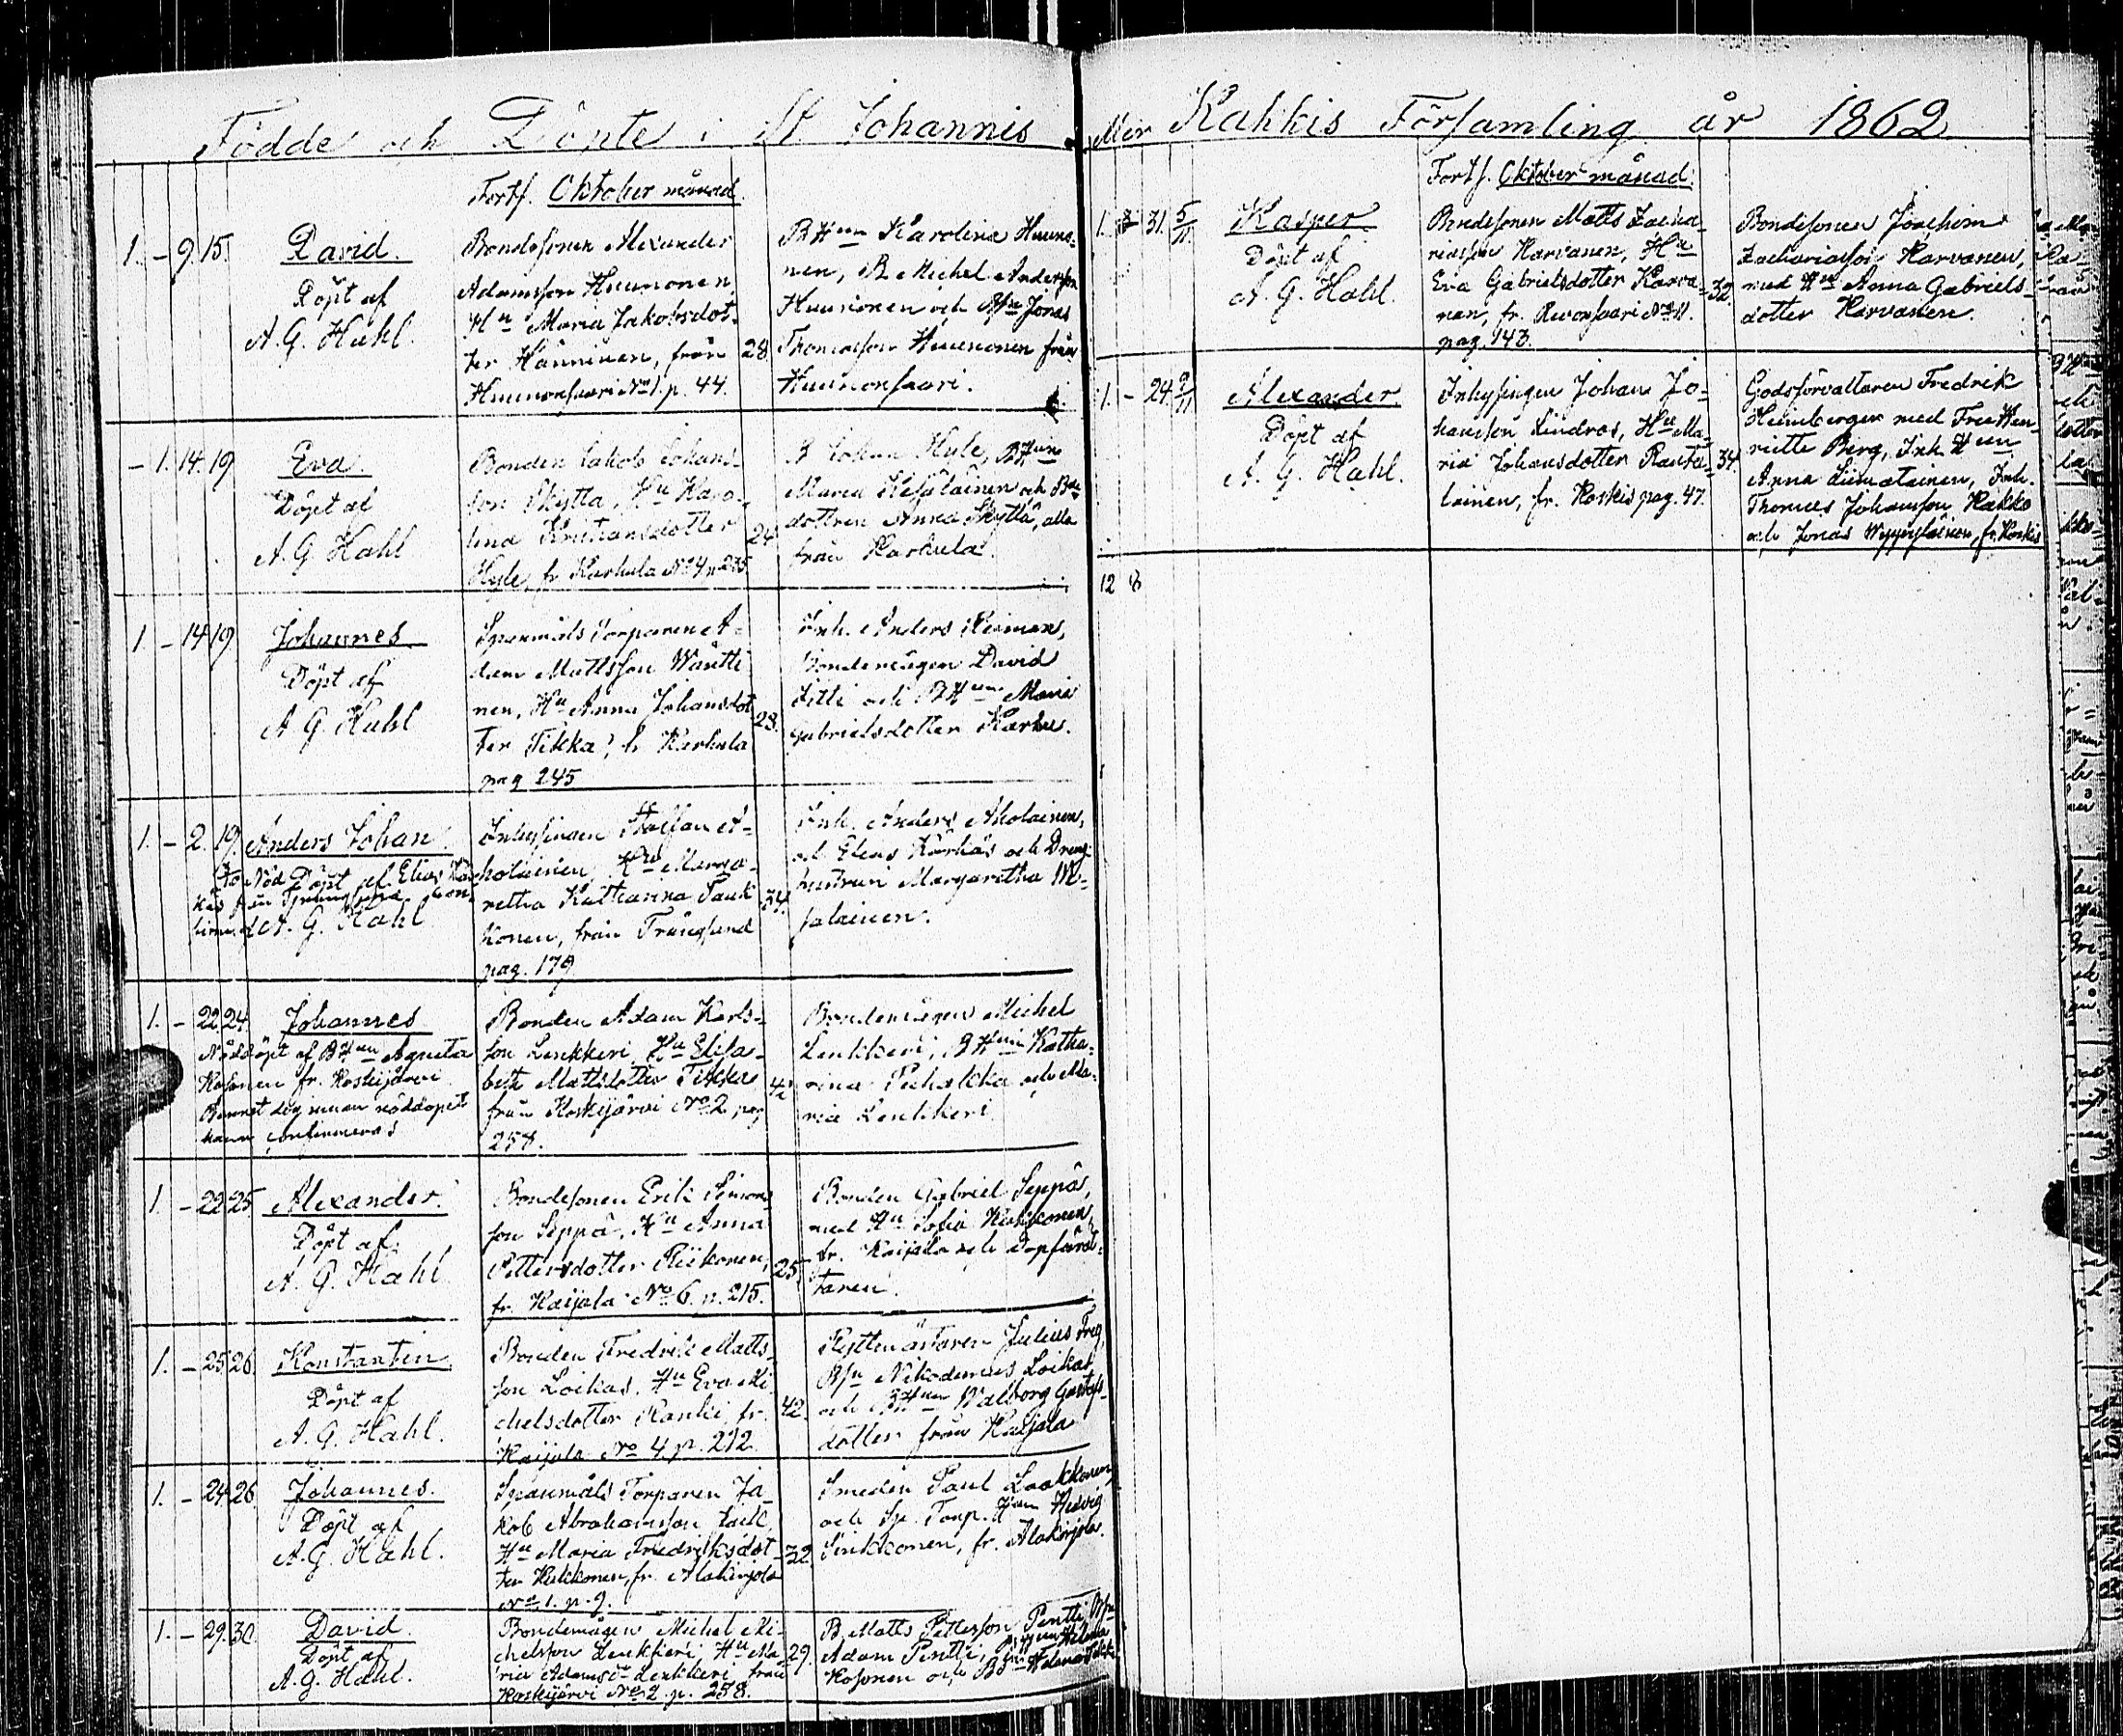 Födde och Döpte i St Johannis
Fortf. Oktober månad.
1. - 9. 15. David.
Döpt af
A. G. Hahl.
Bondesonen Alexander
Adamsson Huunonen,
Hu Maria Jakobsdot-
ter Hänninen, från 28.
Huunonsaari No 1. p. 44.
BHun Karolina Huuno-
nen, B. Michel Andersson
Huunonen och Bsn Jonas
Thomasson Huunonen från
Huunonsaari.
- 1. 14. 19. Eva.
Döpt af
A. G. Hahl
Bonden Jakob Johans-
son Skyttä, Hu Karo-
lina Kristiansdotter 24
Hyle, fr Karhula No 4 p 235.
B Johan Hyle, BHun
Maria Kesälainen och Bde
dottren Anna Skyttä, alla
från Karhula.
1. - 14 19 Johannes
Döpt af
A. G. Hahl
Spanmåls Torparen A-
dam Mattsson Wäntti
nen, Hu Anna Johansdot 23.
ter Tikka, fr Karhula
pag 245
Inh. Anders Reiman,
Bondemågen David
Pitti och BHun Maria
Gabrielsdotter Karhu.
1. - 2. 19. Anders Johan.
Nöd Döpt af Elias
från Trångsund
A. G. Hahl
Inhysingen Staffan A-
holainen, Hu Marga-
retha Katharina Pauk 34.
konen, från Trångsund
pag. 179.
Inh. Anders Aholainen,
och Elias Kärhäs och Dreng
hustrun Margaretha We-
salainen.
1. - 22. 24. Johannes
Nöddöpt af BHun Agneta
Kosonen fr. Koskijärvi
Barnet dog innan nöddopet
kunn confirmeras
Bonden Adam Karls-
son Lenkkeri, Hu Elisa-
beth Mattsdotter Tikka 42
från Koskijärvi No 2 pag
258.
Bondemågen Michel
Lenkkeri, BHun Katha-
rina Puhakka och Ma-
ria Lenkkeri
1. - 22 25. Alexander.
Döpt af
A. G. Hahl
Bondesonen Erik Simons
son Seppä, Hu Anna
Pettersdotter Riikonen, 25.
fr. Kaijala No 6. p. 215.
Bonden Gabriel Seppä,
med Hu Sofia Kukkonen,
fr. Kaijala och Dopförrät-
taren.
1. - 25. 26. Konstantin.
Döpt af
A. G. Hahl.
Bonden Fredrik Matts
son Loikas, Hu Eva Mi-
chelsdotter Ranki, fr. 42.
Kaijala No 4. p. 212.
Ryttmästaren Julius
Bsn Nikodemus Loikas
och BHun Walborg Gustafs-
dotter från Kaijala
1. - 24. 26 Johannes.
Döpt af
A. G. Hahl.
Spanmåls Torparen Ja-
kob Abrahamsson
Hu Maria Fredriksdot 32.
ter Kukkonen, fr. Alakirjola
No 1. p. 9.
Smeden Paul Laakkonen,
och Sp. Torp. Hun Hedvig
Sinkkonen, fr. Alakirjola.
1. - 29. 30. David.
Döpt af
A. G. Hahl.
Bondemågen Michel Mi-
chelsson Lenkkeri, Hu Ma- 29.
ria Adamsdr Lenkkeri från
Koskijärvi No 2 p. 258.
B. Matts Pettersson Pentti, Bsn
Adam Pentti, BHun Helena
Kosonen och Helena Tikka
Mer Kakkis Församling år 1862
Fortf. Oktober månad.
1. 31. 5/11. Kasper.
Döpt af
A. G. Hahl.
Bondesonen Matts Zacha-
riasson Karvanen, Hu
Eva Gabrielsdotter Karva- 32
nen, fr. Revonsaari No 11.
pag. 143.
Bondesonen Joachim
Zachariasson Karvanen,
med Hu Anna Gabriels-
dotter Karvanen.
1. - 24. 9/11 Alexander.
Döpt af
A. G. Hahl.
Inhysingen Johan Jo-
hansson Lindros, Hu Ma-
ria Johansdotter Ranta- 34.
lainen, fr. Koskis pag. 47.
Godsförvaltaren Fredrik
Heimberger med Fru Hen-
riette Berg, Inh. Hun
Anna Liimatainen, Inh.
Thomas Johansson Kakko
och Jonas fr. Koskis
12 8